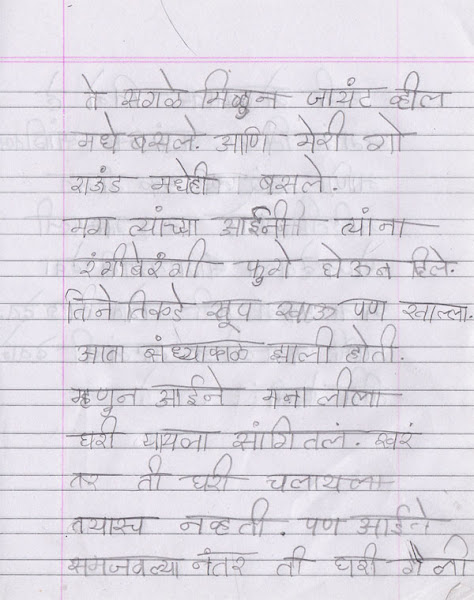 ते सगळे मिळून जायंट व्हील
मधे बसले. आणि मेरी गो
राऊंड मधेही बसले.
मग त्यांच्या आईनी त्यांना
रंगीबेरंगी फुगे घेऊन दिले.
तिने तिकडे खूप खाऊ पण खाल्ला.
आता संध्याकाळ झाली होती.
म्हणुन आईने मनालीला
घरी यायला सांगितलं. खरं
तर ती घरी चलायला
तयारच नव्हती. पण आईने
समजवल्या नंतर ती घरी गेली